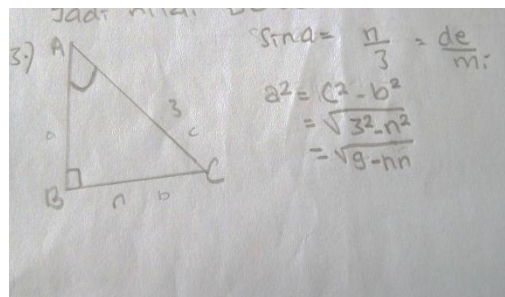 Jadi nilai
3.)
A
3
c
B
n b
C
sin a = n/3 = de/mi
a² = c² - b²
= √3²-n²
= √9-nn